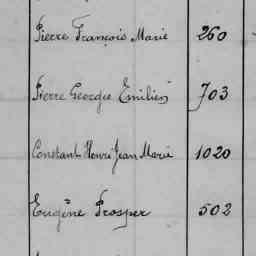 Pierre François Marie 260
Pierre Georges Emilien 703
Constant Henri Jean Marie 1020
Eugène Prosper 502